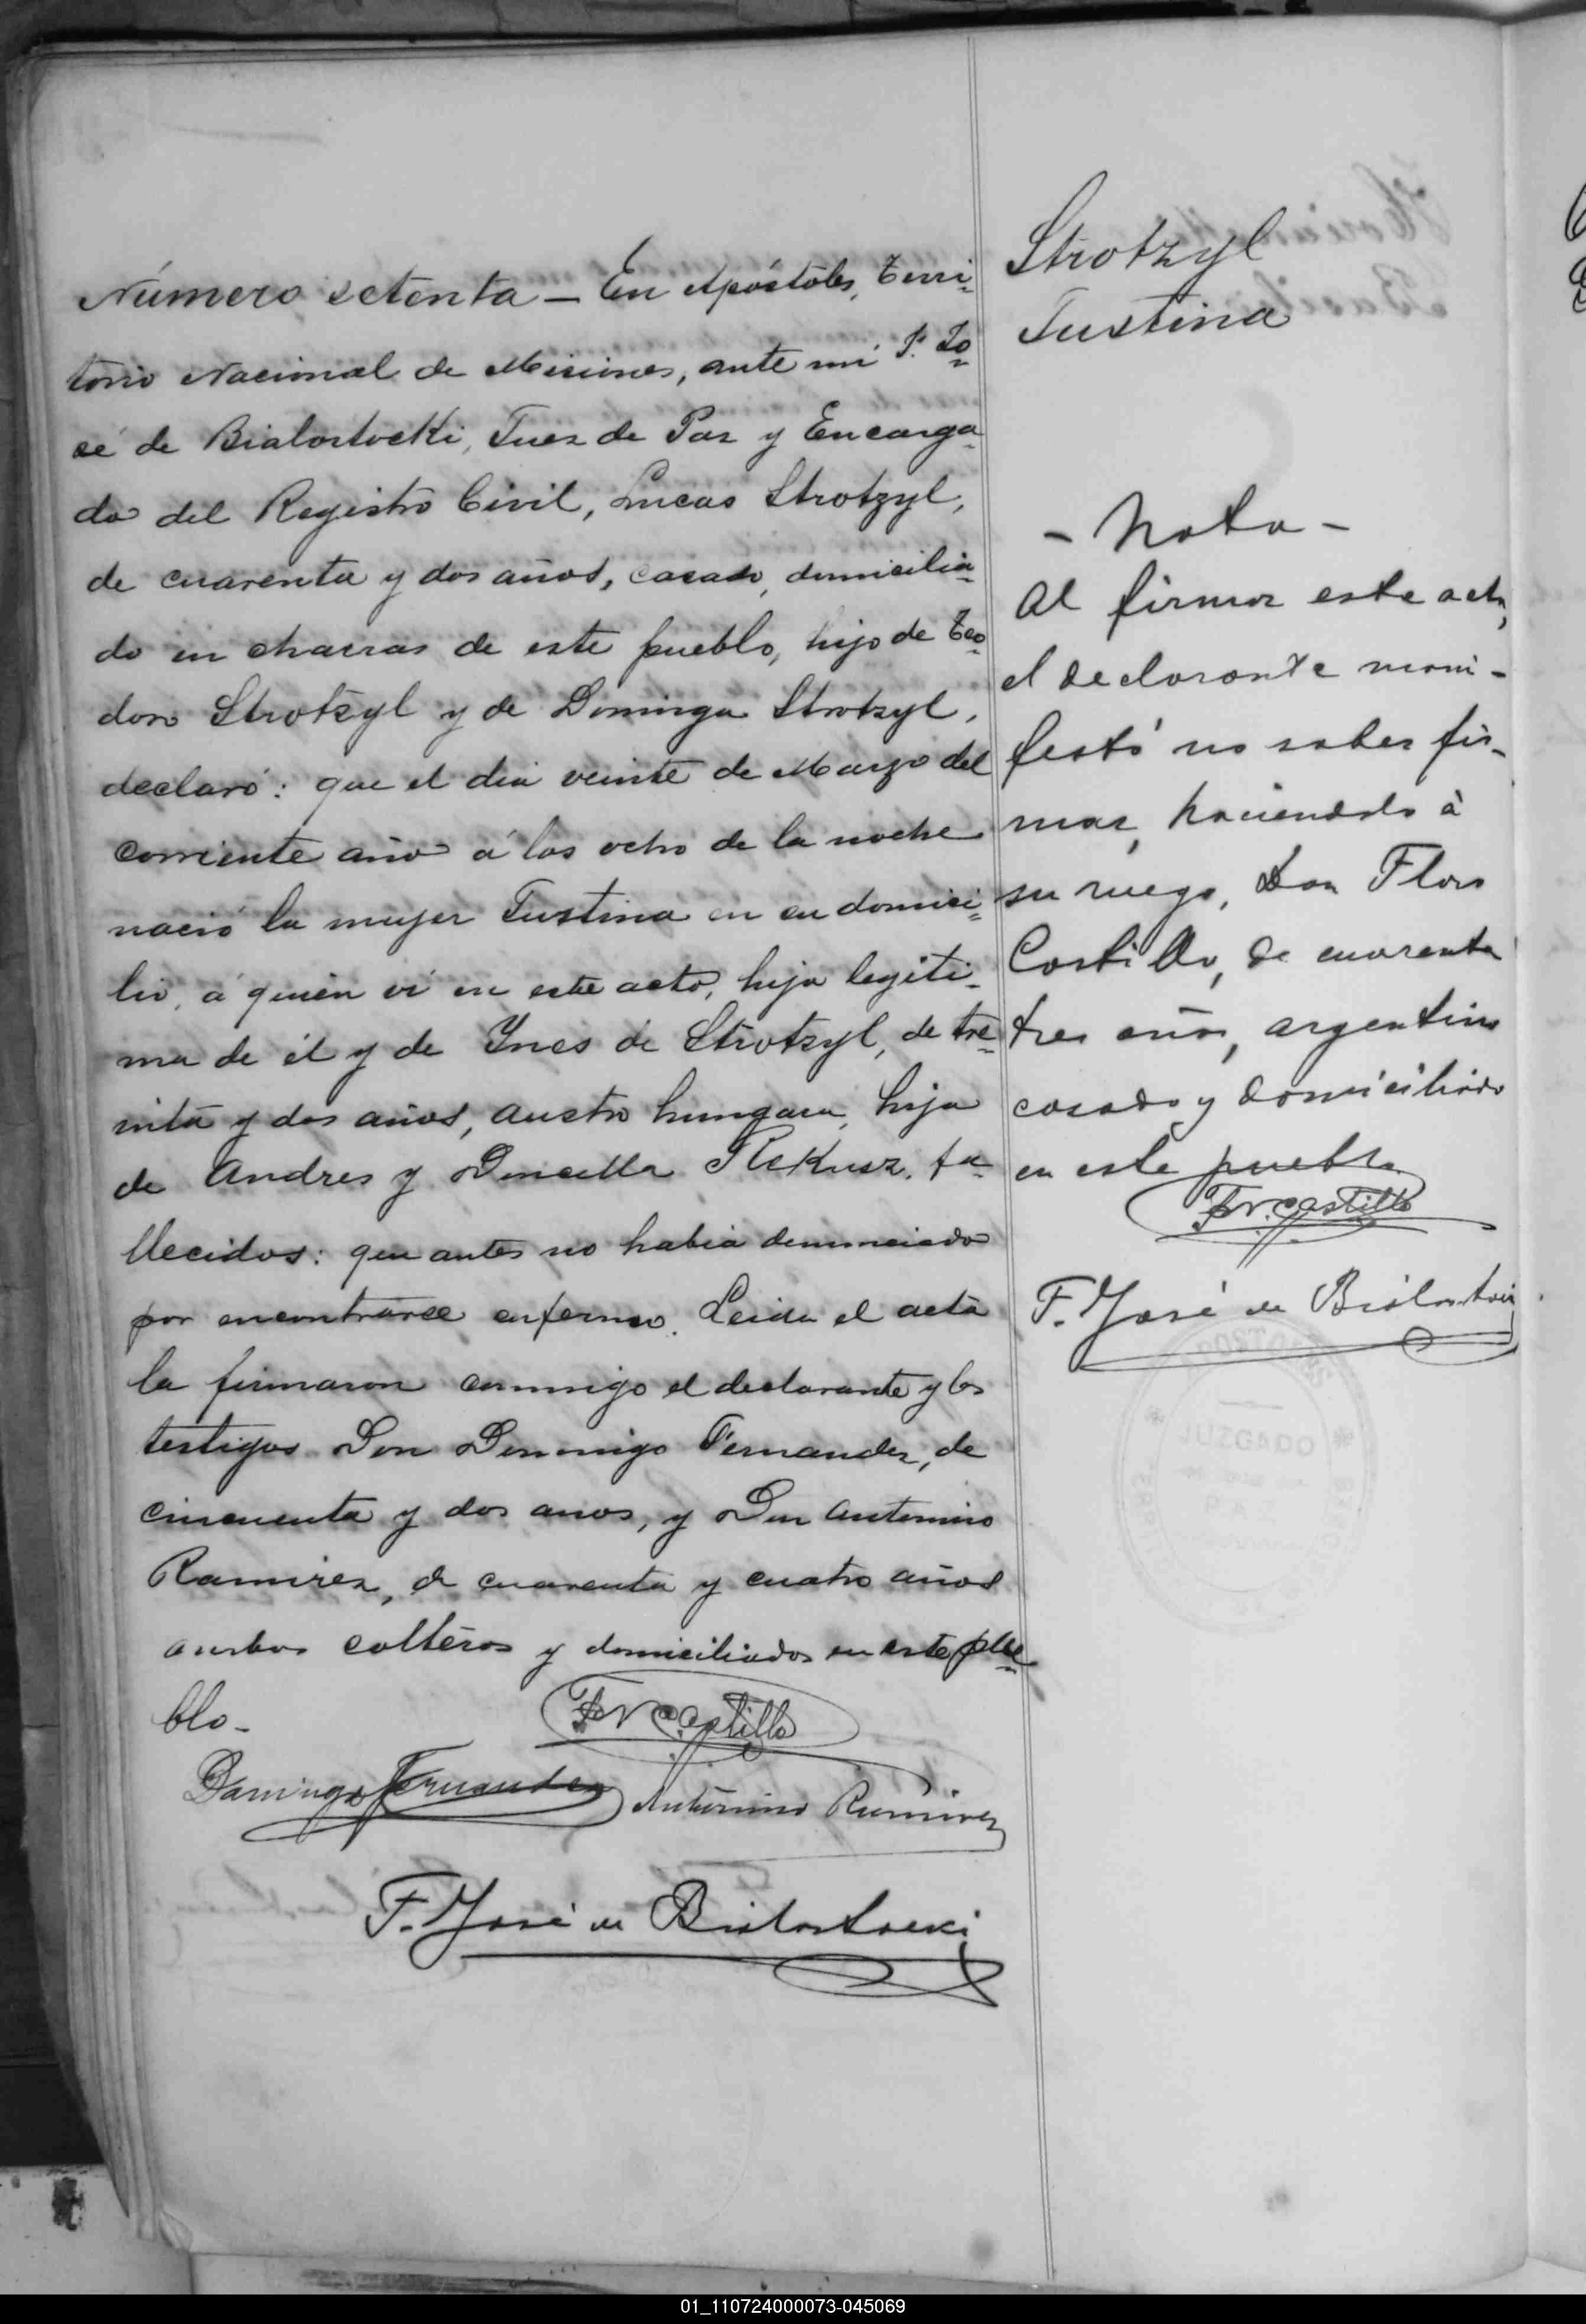 Número setenta — En Apóstoles, Terri-
torio Nacional de Misiones, ante mi F. Jo-
sé de Bialostocki, Juez de Paz y Encarga-
do del Registro Civil, Lucas Strotzyl,
de cuarenta y dos años, casado, domicilia-
do en chacras de este pueblo, hijo de Teo-
doro Strotzyl y de Dominga Strotzyl,
declaró: que el dia veinte de Marzo del
corriente año á las ocho de la noche
nació la mujer Justina en su domici-
lio, á quien ví en este acto, hija legiti-
ma de él y de Ynes de Strotzyl, de tre-
inta y dos años, austro hungara, hija
de Andres y Rekusz, fa-
llecidos: que antes no habia denunciado
por encontrarse enfermo. Leida el acta
la firmaron conmigo el declarante y los
testigos Don Domingo Fernandez, de
cincuenta y dos años, y Don Antonino
Ramirez, de cuarenta y cuatro años
ambos solteros y domiciliados en este pue-
blo-
F N Castillo
Domingo Fernandez Antonino Ramirez
F. José de Bialostocki
Strotzyl
Justina
- Nota -
Al firmar este acta,
el declarante mani-
festó no saber fir-
mar, haciendolo à
su ruego, Don Floro
Castillo, de cuarenta
tres años, argentino
casado y domiciliado
en este pueblo
F N. Castillo
F. José de Bialostocki
JUZGADO
01_110724000073-045069